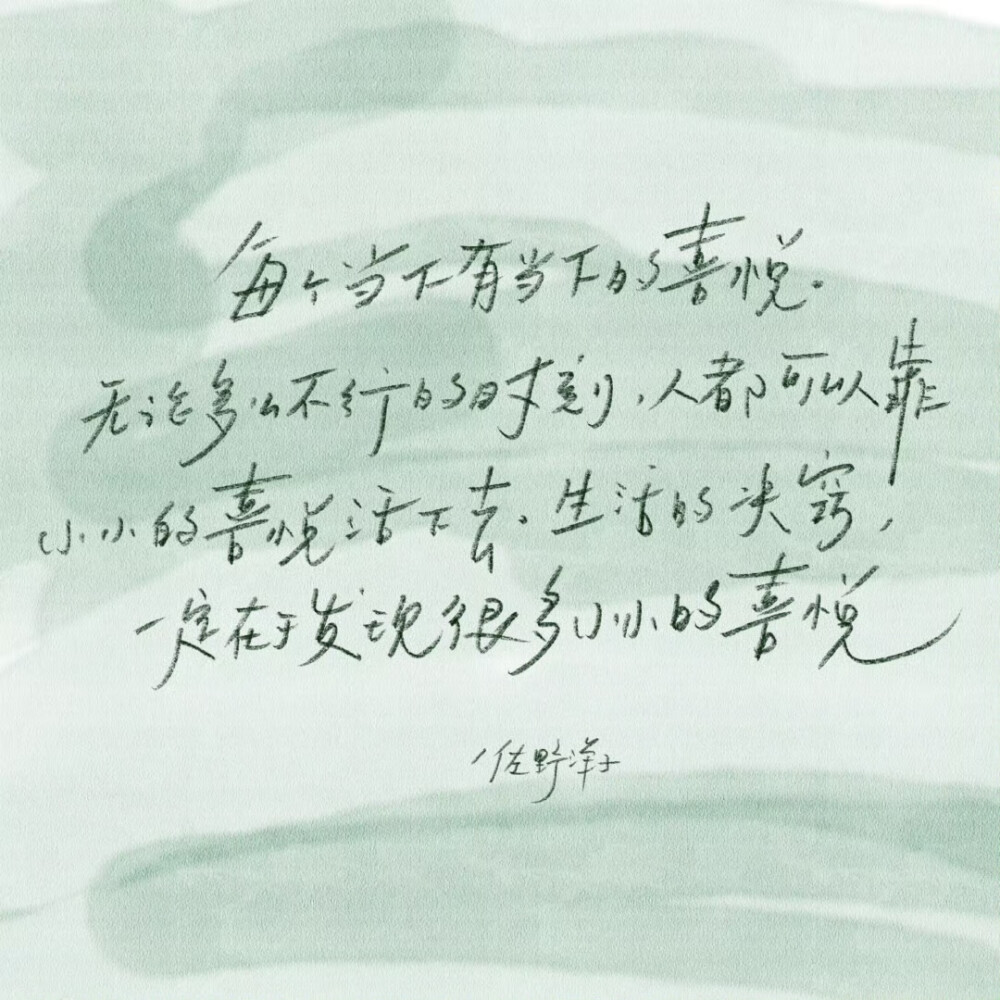 每个当下有当下的喜悦.
无论多么不行的时刻,人都可以靠
小小的喜悦活下去.生活的决窍,
一定在于发现很多小小的喜悦
/佐野洋子